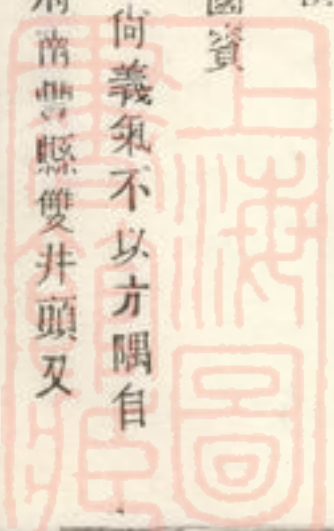 國資
尚義氣不以方隅自
府南豐縣雙井頭又
上海圖書館藏